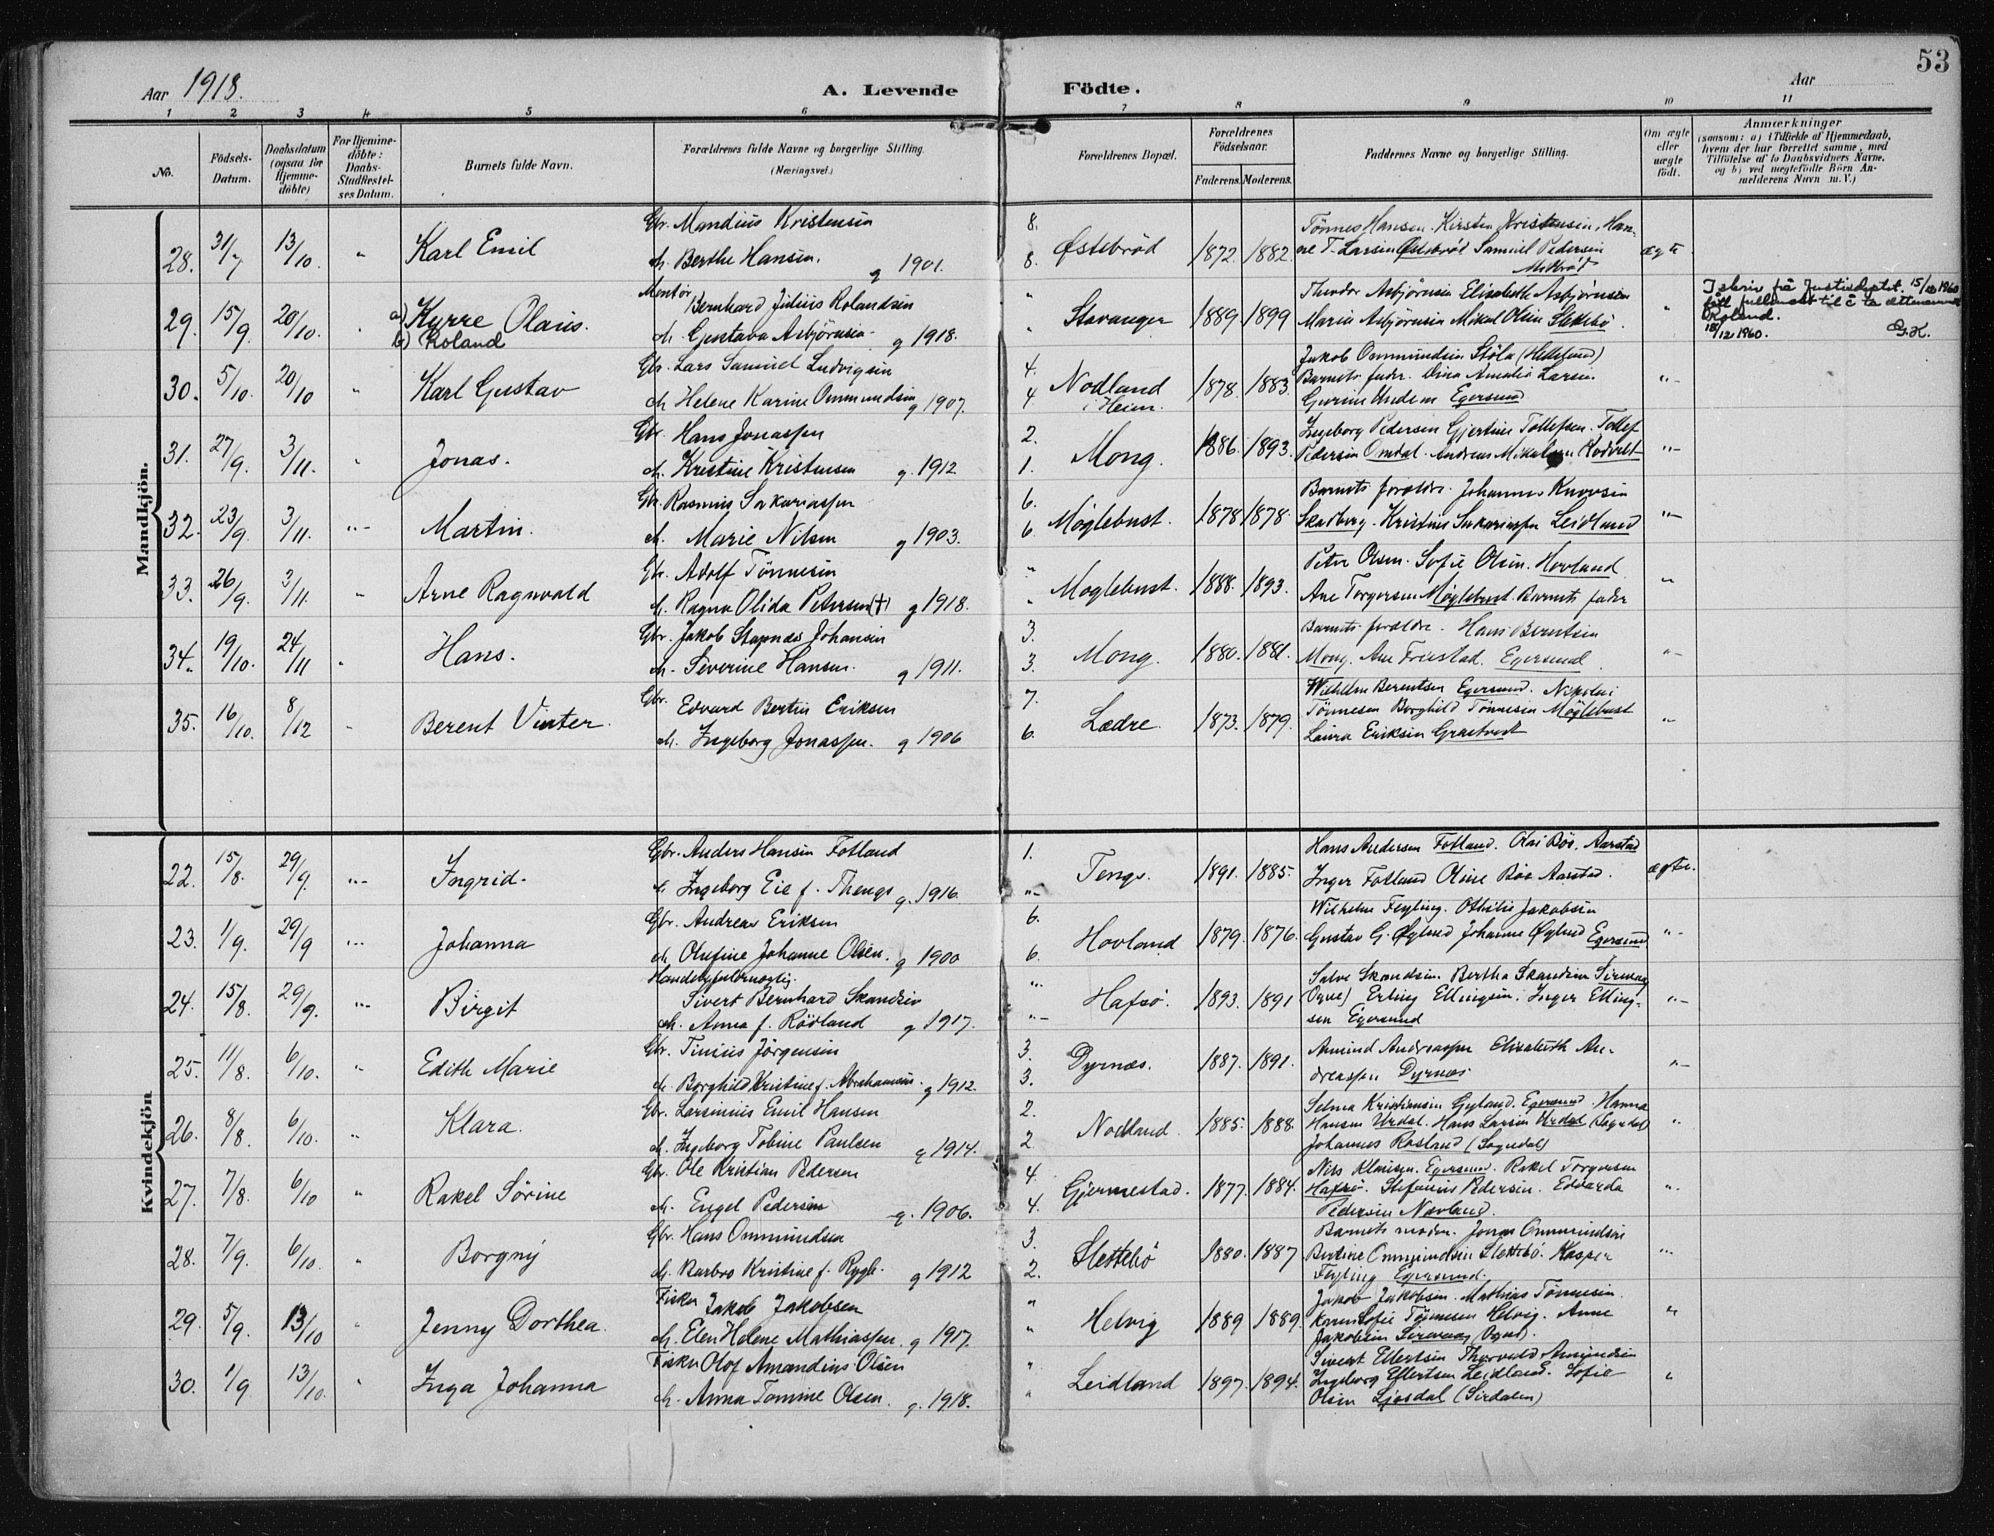 53
Aar 1918.
A. Levende Födte.
Aar
1 2 3 4 5 6 7 8 9 10 11
No.
Födsels-Datum.
Daabsdatum (ogsaa for Hjemme-döbte)
For Hjemme-döbte: Daabs-Stadfæstel-ses Datum.
Barnets fulde Navn.
Forældrenes fulde Navne og borgerlige Stilling. (Næringsvei.)
Forældrenes Bopæl.
Forældrenes Födselsaar.
Faderens. Moderens.
Faddernes Navne og borgerlige Stilling.
Om ægte eller uægte födt.
Anmærkninger
(saasom: a) i Tilfælde af Hjemmedaab, hvem der har forrettet samme, med Tilföielse af to Daabsvidners Navne, og b) ved uægtefödte Börn An-melderens Navn m.V.)
Mandkjön.
28. 31/7 13/10. Karl Emil
Gbr. Mandius Kristensen
h. Berthe Hansen. g 1901.
8. 8. Østebrød 1872. 1882.
Tönnes Hansen. Kirsten Kristensen, Han-
T. Larsen Østebrød Samuel Pedersen
ægte
29. 15/9. 20/10. a) Kyrre Olaus. b) Roland
Montör Bernhard Julius Rolandsen
h. Gustava Asbjörnsen g 1918.
Stavanger 1889. 1899
Theodor Asbjörnsen Elisabeth Asbjörnsen
Maria Asbjörnsen Mikal Olsen Slettebö.
I skriv på Justisdeptet 15/12 1960
til å ta etternavnet
Roland.
12 1960. G.K.
30. 5/10. 20/10 Karl Gustav
Gbr. Lars Samuel Ludvigsen
h. Helene Karine Ommundsen g 1907.
4. 4 Nodland i Heim. 1878. 1883
Jakob Ommundsen Støla (Hetland)
Barnets fader. Dina Amalia Larsen
Egersund
31. 27/9. 3/11. Jonas.
Gbr. Hans Jonassen
h. Kristine Kristensen g 1912
2. 1. Mong. 1886. 1893.
Ingeborg Pedersen Gjertine Tollefsen. Tollef
Pedersen Omdal. Andreas Mikalsen Rodvelt
32. 23/9 3/11. Martin.
Gbr. Rasmus Sakariassen
h. Marie Nilsen g 1903.
6. 6 Møglebust. 1878 1878.
Barnets forældre. Johannes Knudsen
Skadberg. Kristine Sakariassen Leidland
33. 26/9. 3/11. Arne Ragnvald
Gbr. Adolf Tönnesen
h. Ragna Olida Petersen (†) g 1918.
Møglebust. 1888. 1893.
Peter Olsen. Sofie Olsen. Hovland
Ane Torgersen Møglebust. Barnets fader
34. 19/10. 24/11 Hans.
Gbr. Jakob Stapnes Johansen
h. Severine Hansen. g 1911.
3. 3. Mong. 1880. 1881.
Barnets forældre. Hans Berntsen
Mong. Ane Friestad. Egersund.
35. 16/10. 8/12 Berent Vinter.
Gbr. Edvard Bertin Eriksen
h. Ingeborg Jonassen. g 1906
7. 6. Lædre. 1873. 1879.
Wilhelm Berentsen Egersund. Nikolai
Tönnesen Borghild Tönnesen Møglebust
Laura Eriksen
Kvindekjön
22. 15/8. 29/9. Ingrid.
Gbr. Anders Hansen Fotland
h. Ingeborg Eie f. Thengs g. 1916.
1. Tengs. 1891. 1885.
Hans Andersen Fotland. Olai Böe. Aarstad
Inger Fotland Oline Böe Aarstad.
ægte.
23. 1/9. 29/9 Johanna
Gbr. Andreas Eriksen
h. Olufine Johanne Olsen. g 1900
6. 6. Hovland 1879. 1876.
Wilhelm Feyling. Othilie Jakobsen
Gustav G. Øglend Johanne Øglend Egersund
24. 15/8. 29/9. Birgit
Handelsfuldmægtig. Sivert Bernhard Skandsen
h. Anna f. Rödland g 1917.
Hafsö. 1893. 1891
Salve Skandsen. Bertha Skandsen Sirevaag
(Ogne) Erling Ellingsen. Inger Elling-
sen Egersund
25. 11/8. 6/10. Edith Marie
Gbr. Tinius Jörgensen
h. Borghild Kristine f. Abrahamsen g 1912.
3. 3. Dyrnæs. 1887. 1891.
Amund Andreassen Elisabeth An-
dreassen Dyrnæs
26. 8/8. 6/10. Klara.
Gbr. Larsinius Emil Hansen
h. Ingeborg Tobine Paulsen g 1914.
2. 2 Nodland. 1885. 1888
Selma Kristiansen Gyland. Egersund. Hanna
Hansen Urdal. Hans Larsen Urdal (Sogndal)
Johannes Rosland (Sogndal)
27. 7/8. 6/10 Rakel Sörine
Gbr. Ole Kristian Pedersen
h. Engel Pedersen g. 1906.
4. 4. Gjermestad. 1877. 1884.
Nils Klausen. Egersund. Rakel Torgersen
Hafsö. Stefanus Pedersen. Edvarda
Pedersen Nævland.
28. 7/9. 6/10. Borgny
Gbr. Hans Ommundsen
h. Barbro Kristine f. Rygh. g 1912
3. 2. Slettebö 1880. 1887
Barnets moder. Jonas Ommundsen
Bertine Ommundsen Slettebö. Kasper
Feyling Egersund.
29. 5/9. 13/10 Jenny Dorthea.
Fisker Jakob Jakobsen
h. Elen Helene Mathiassen. g 1917.
Helvig 1889 1889.
Jakob Jakobsen. Mathias Tönnesen.
Karen Sofie Tönnesen Helvig. Anne
Jakobsen Sirevaag (Ogne).
30. 1/9 13/10. Inga Johanna
Fisker Olof Amandius Olsen
h. Anna Tomine Olsen. g. 1918.
Leidland 1897. 1894.
Sivert Ellertsen Thorvald Amundsen
Ingeborg Ellertsen Leidland E. Sofie
Olsen Ljosdal (Sirdalen)